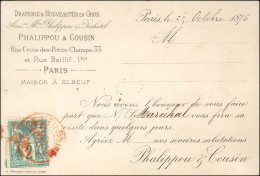 Draperie & Nouveautés en Gros
Anc. Mon. Phalippou & Rachetel
Phalippou & Cousin
Rue Croix-des-Petits-Champs, 33
et Rue Baillif, 1bis
PARIS
MAISON À ELBEUF
Paris, le 23 Octobre 1876
M
Nous avons l'honneur de vous faire
part que N. S. Maréchal vous fera
visite dans quelques jours.
Agréez M nos sincères salutations
Phalippou & Cousin